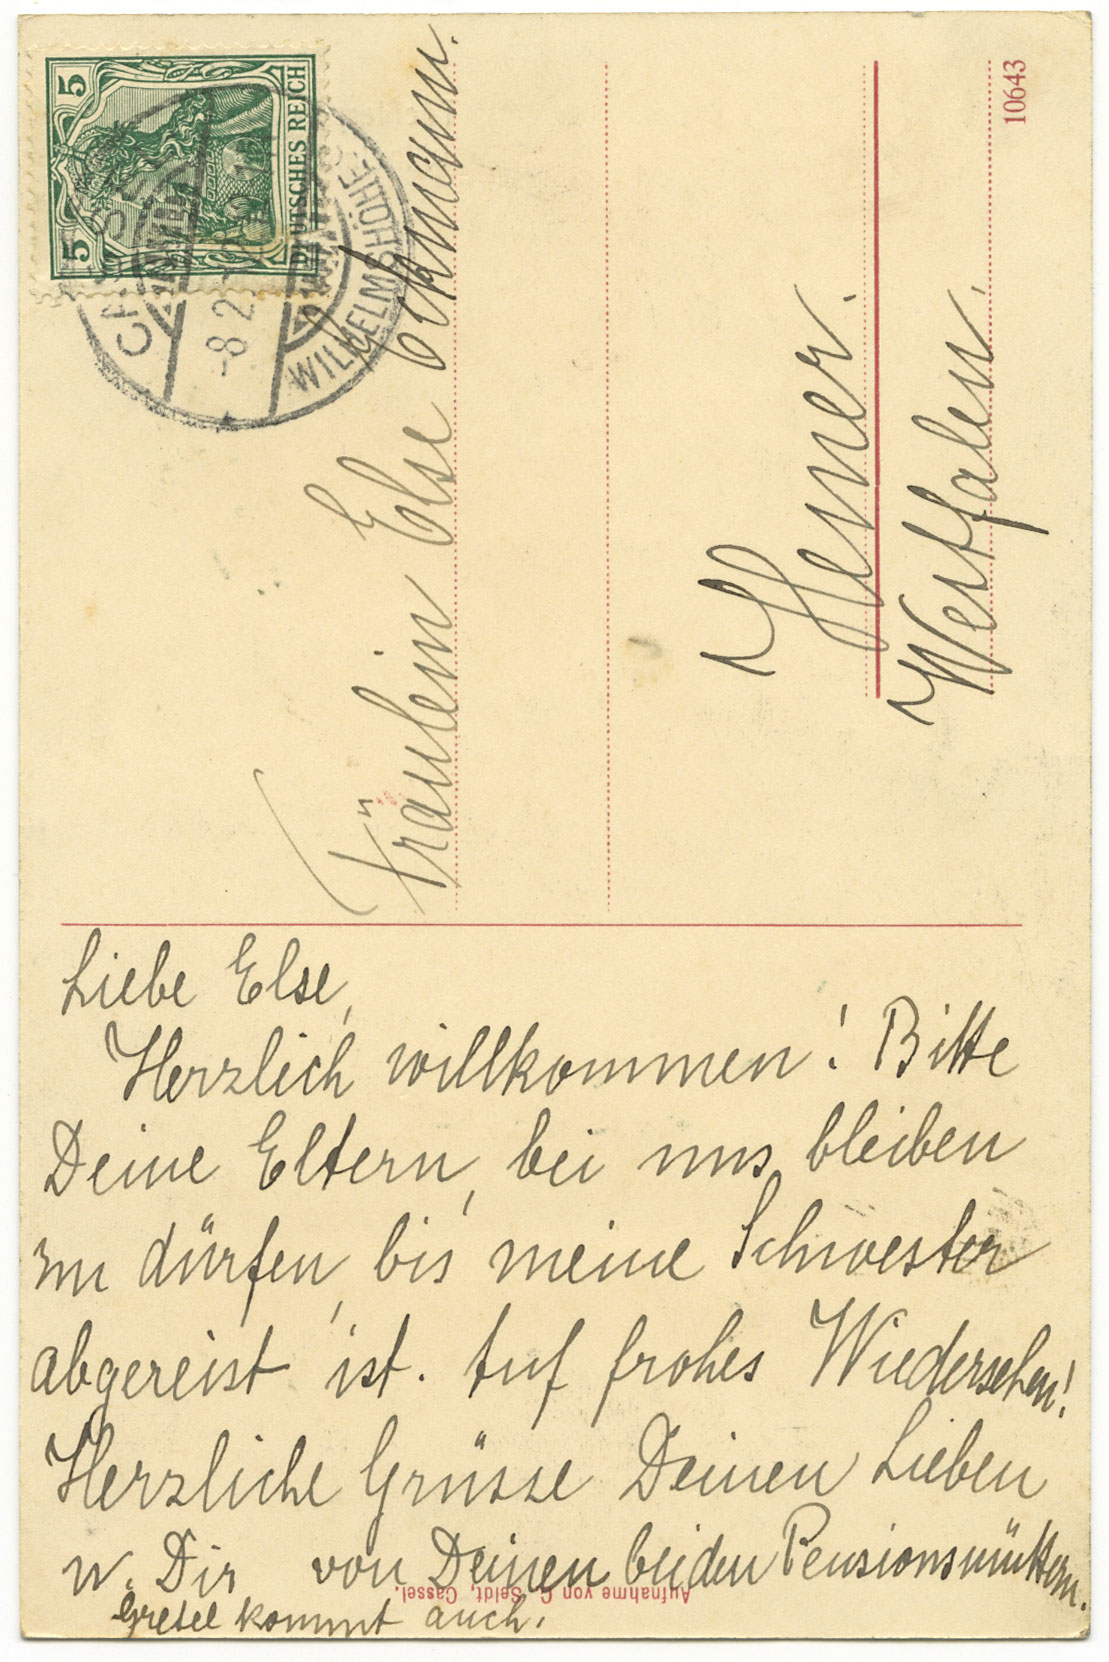 5 5
DEUTSCHES REICH
WILHELMSHÖHE
-8 2
10643
Fräulein Else Eckmann.
Hemer.
Westfalen.
Liebe Else,
Herzlich willkommen! Bitte
Deine Eltern, bei uns bleiben
zu dürfen, bis meine Schwester
abgereist ist. Auf frohes Wiedersehen!
Herzliche Grüsse Deinen Lieben
u. Dir von Deinen beiden Pensionsmüttern.
Gretel kommt auch.
Aufnahme von C. Seldt, Cassel.